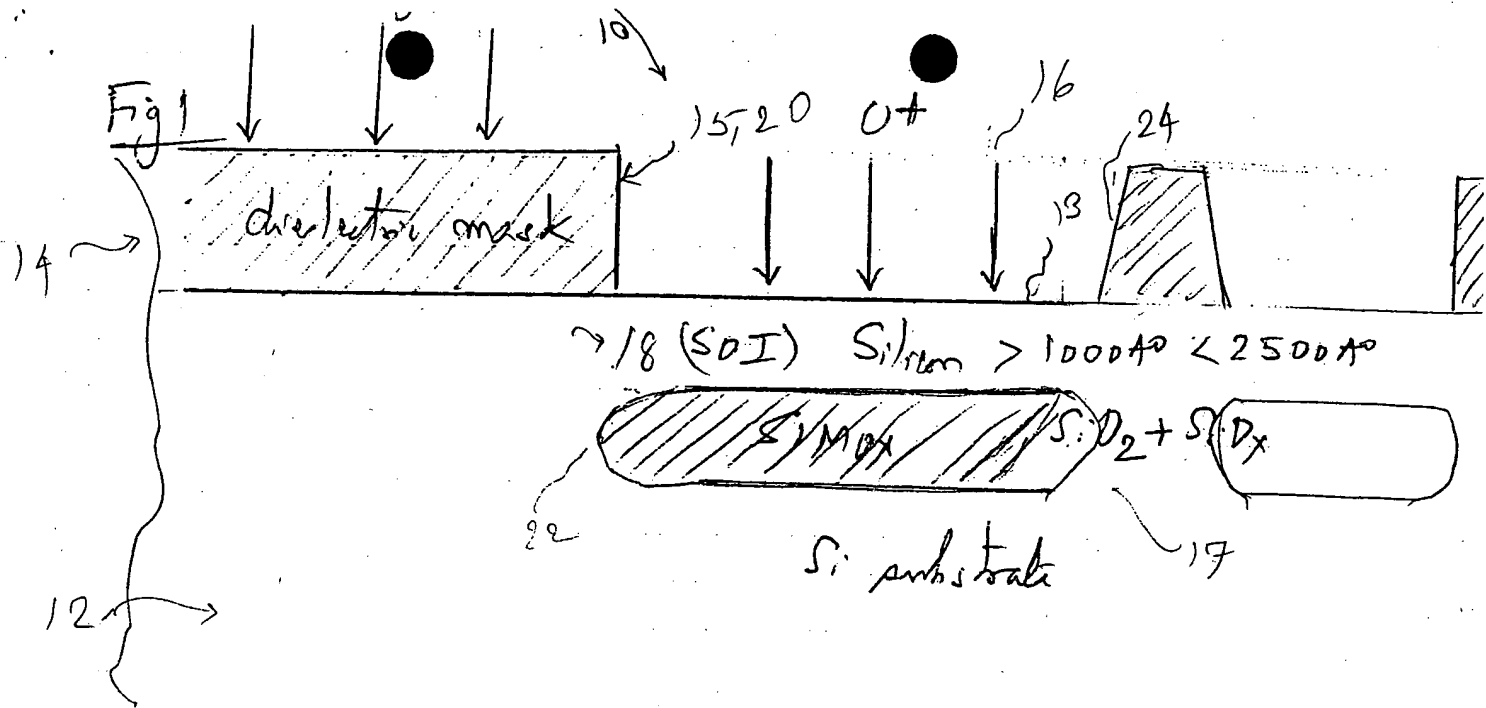 10
Fig 1
15,20 O+ 16
24
dielectric mask
13
14
18 (SOI) Silicon > 1000A° < 2500A°
SiMOX SiO2 + SiOx
22
Si substrate
17
12